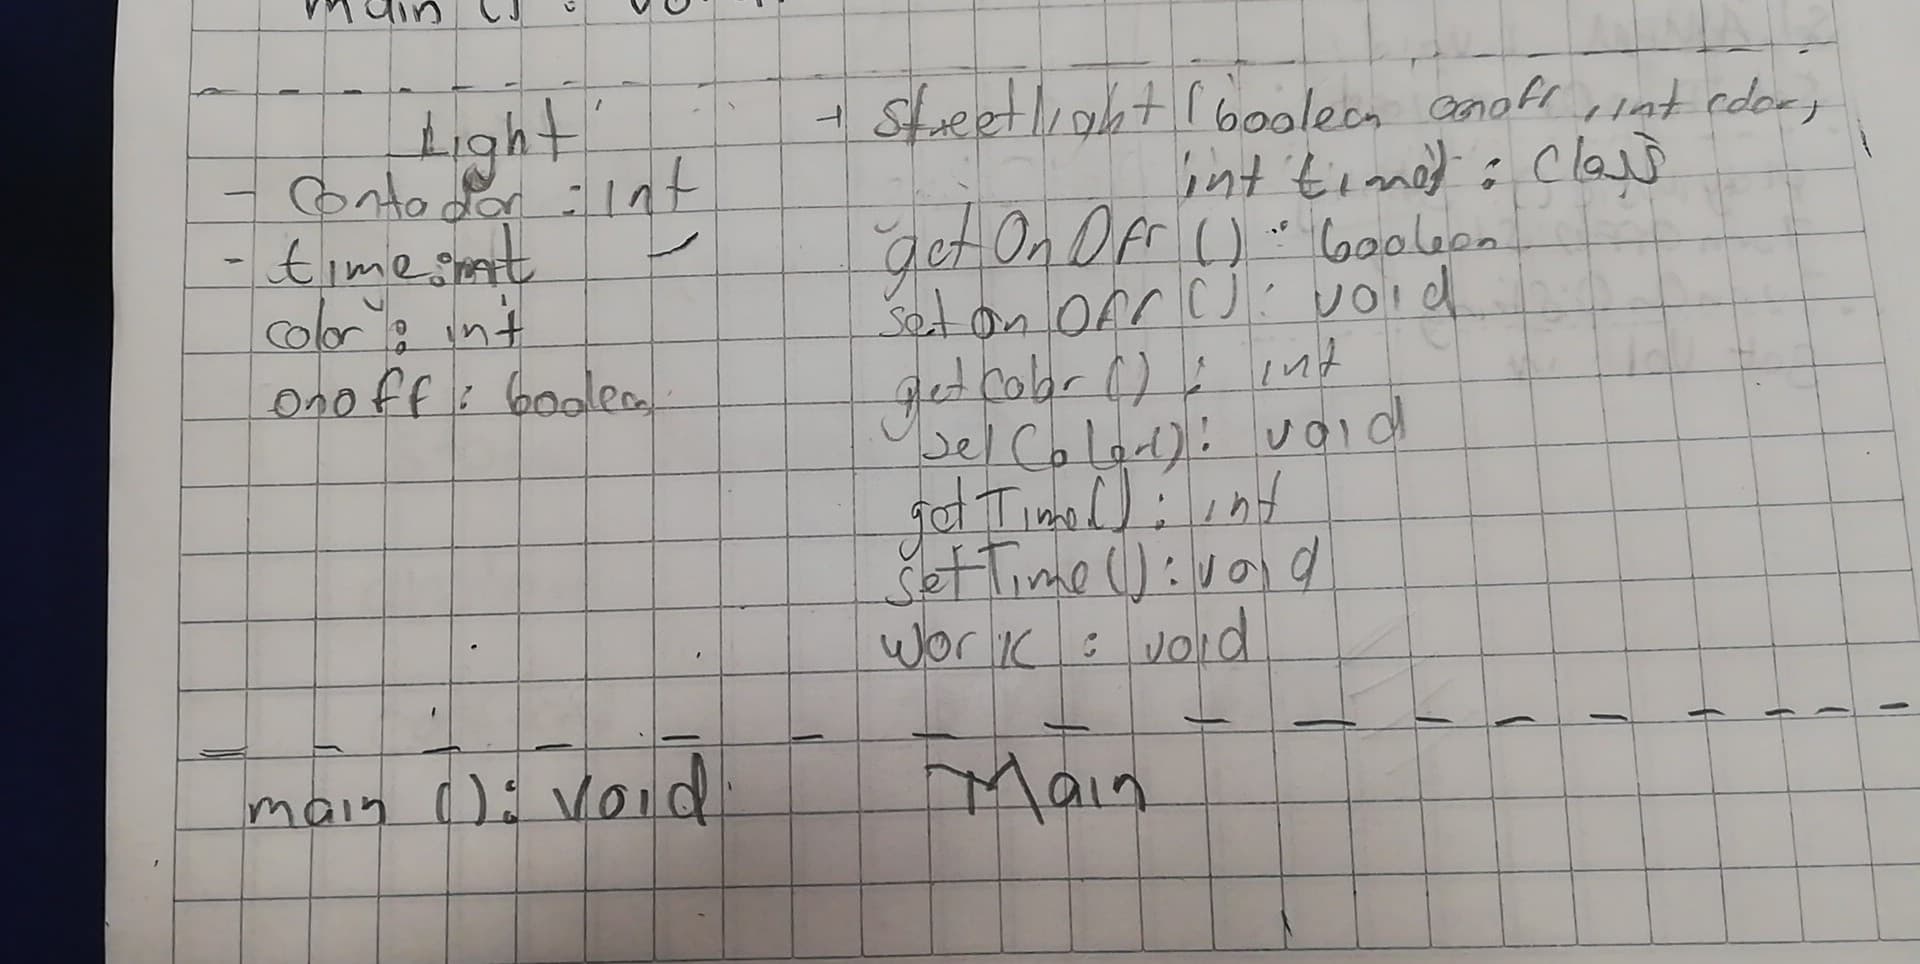 main () : vo
Light
- Contador : int
- time : int
color : int
onoff : boolean
+ Streetlight (boolean onoff, int color,
int time) : Class
getOnOff () : boolean
setOnOff () : void
getColor () : int
setColor() : void
getTime() : int
setTime() : void
work : void
main () : void
Main